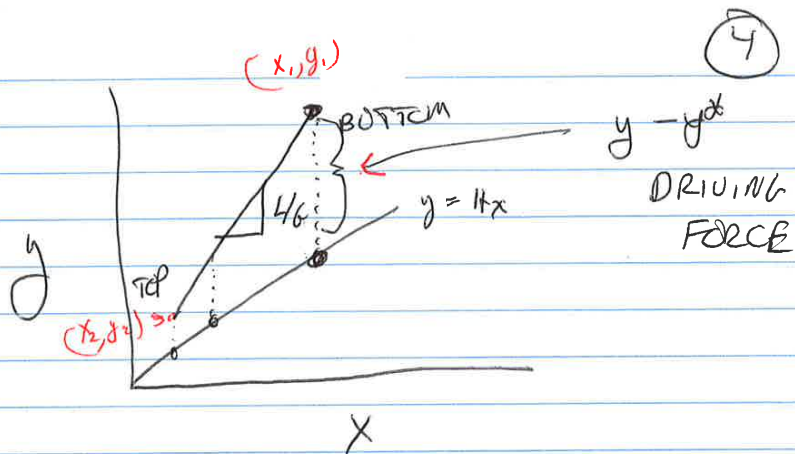 4
(x₁,y₁)
BOTTOM
y - y*
DRIVING
FORCE
L/G
y = Hx
y
TOP
(x₂,y₂)
X